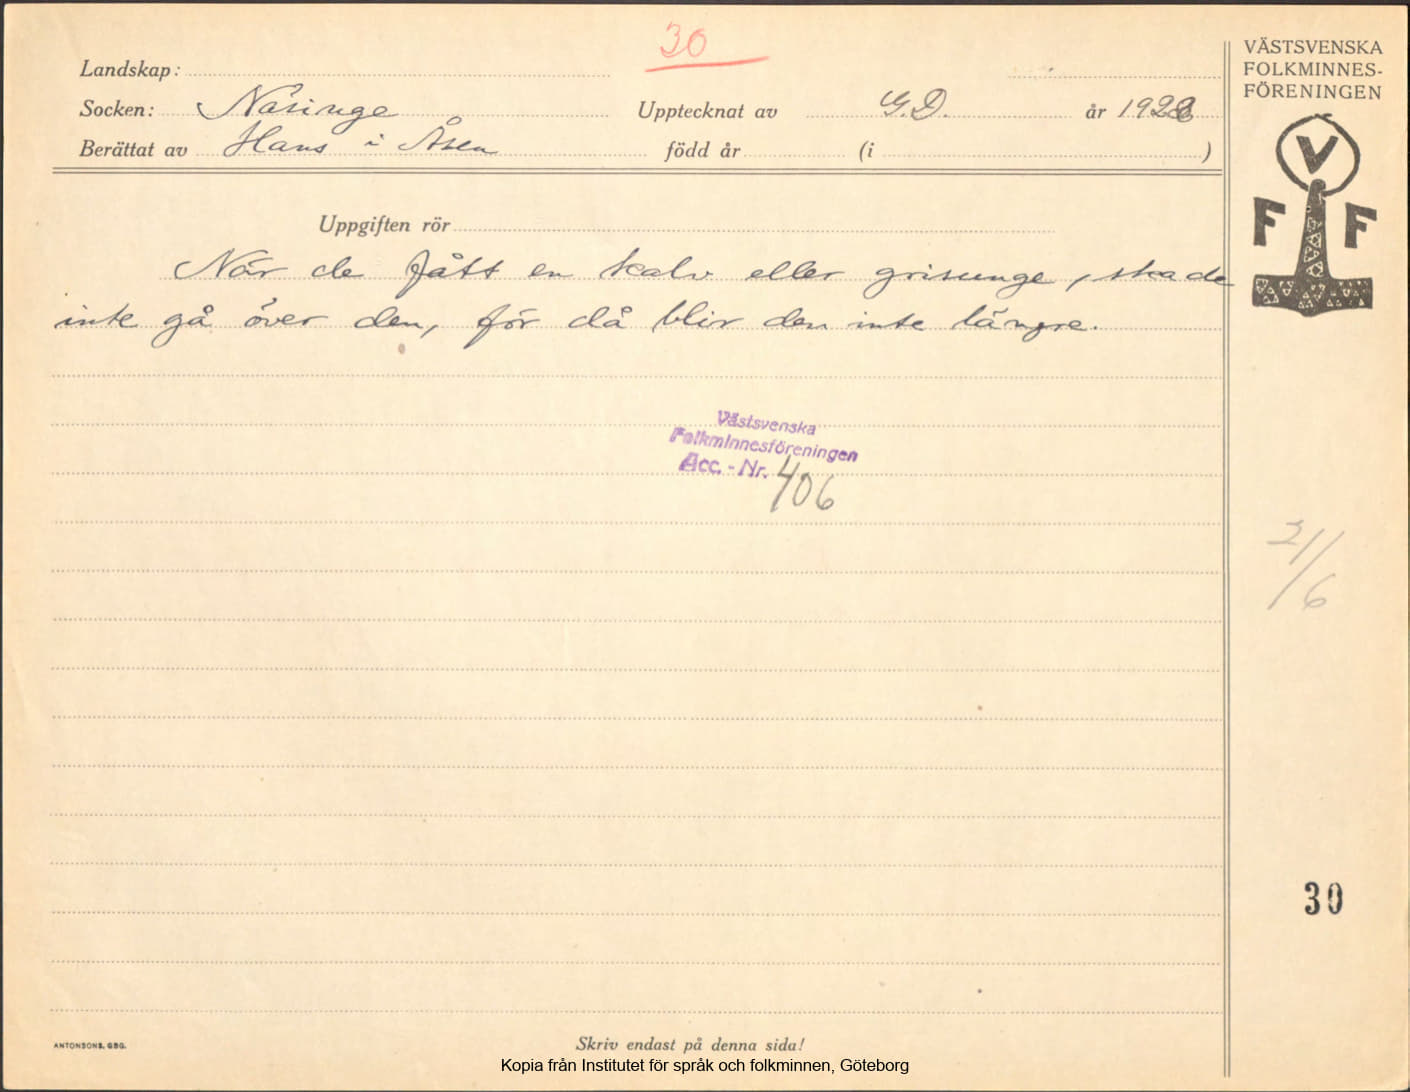 30
VÄSTSVENSKA
FOLKMINNES-
FÖRENINGEN
Landskap:
Socken: Näsinge Upptecknat av G.D. år 1928
Berättat av Hans i Åsen född år (i )
V
F F
Uppgiften rör
När de fått en kalv eller grisunge, ska de
inte gå över den, för då blir den inte längre.
Västsvenska
Folkminnesföreningen
Acc. - Nr. 406
21/6
30
ANTONSONS, GBG.
Skriv endast på denna sida!
Kopia från Institutet för språk och folkminnen, Göteborg